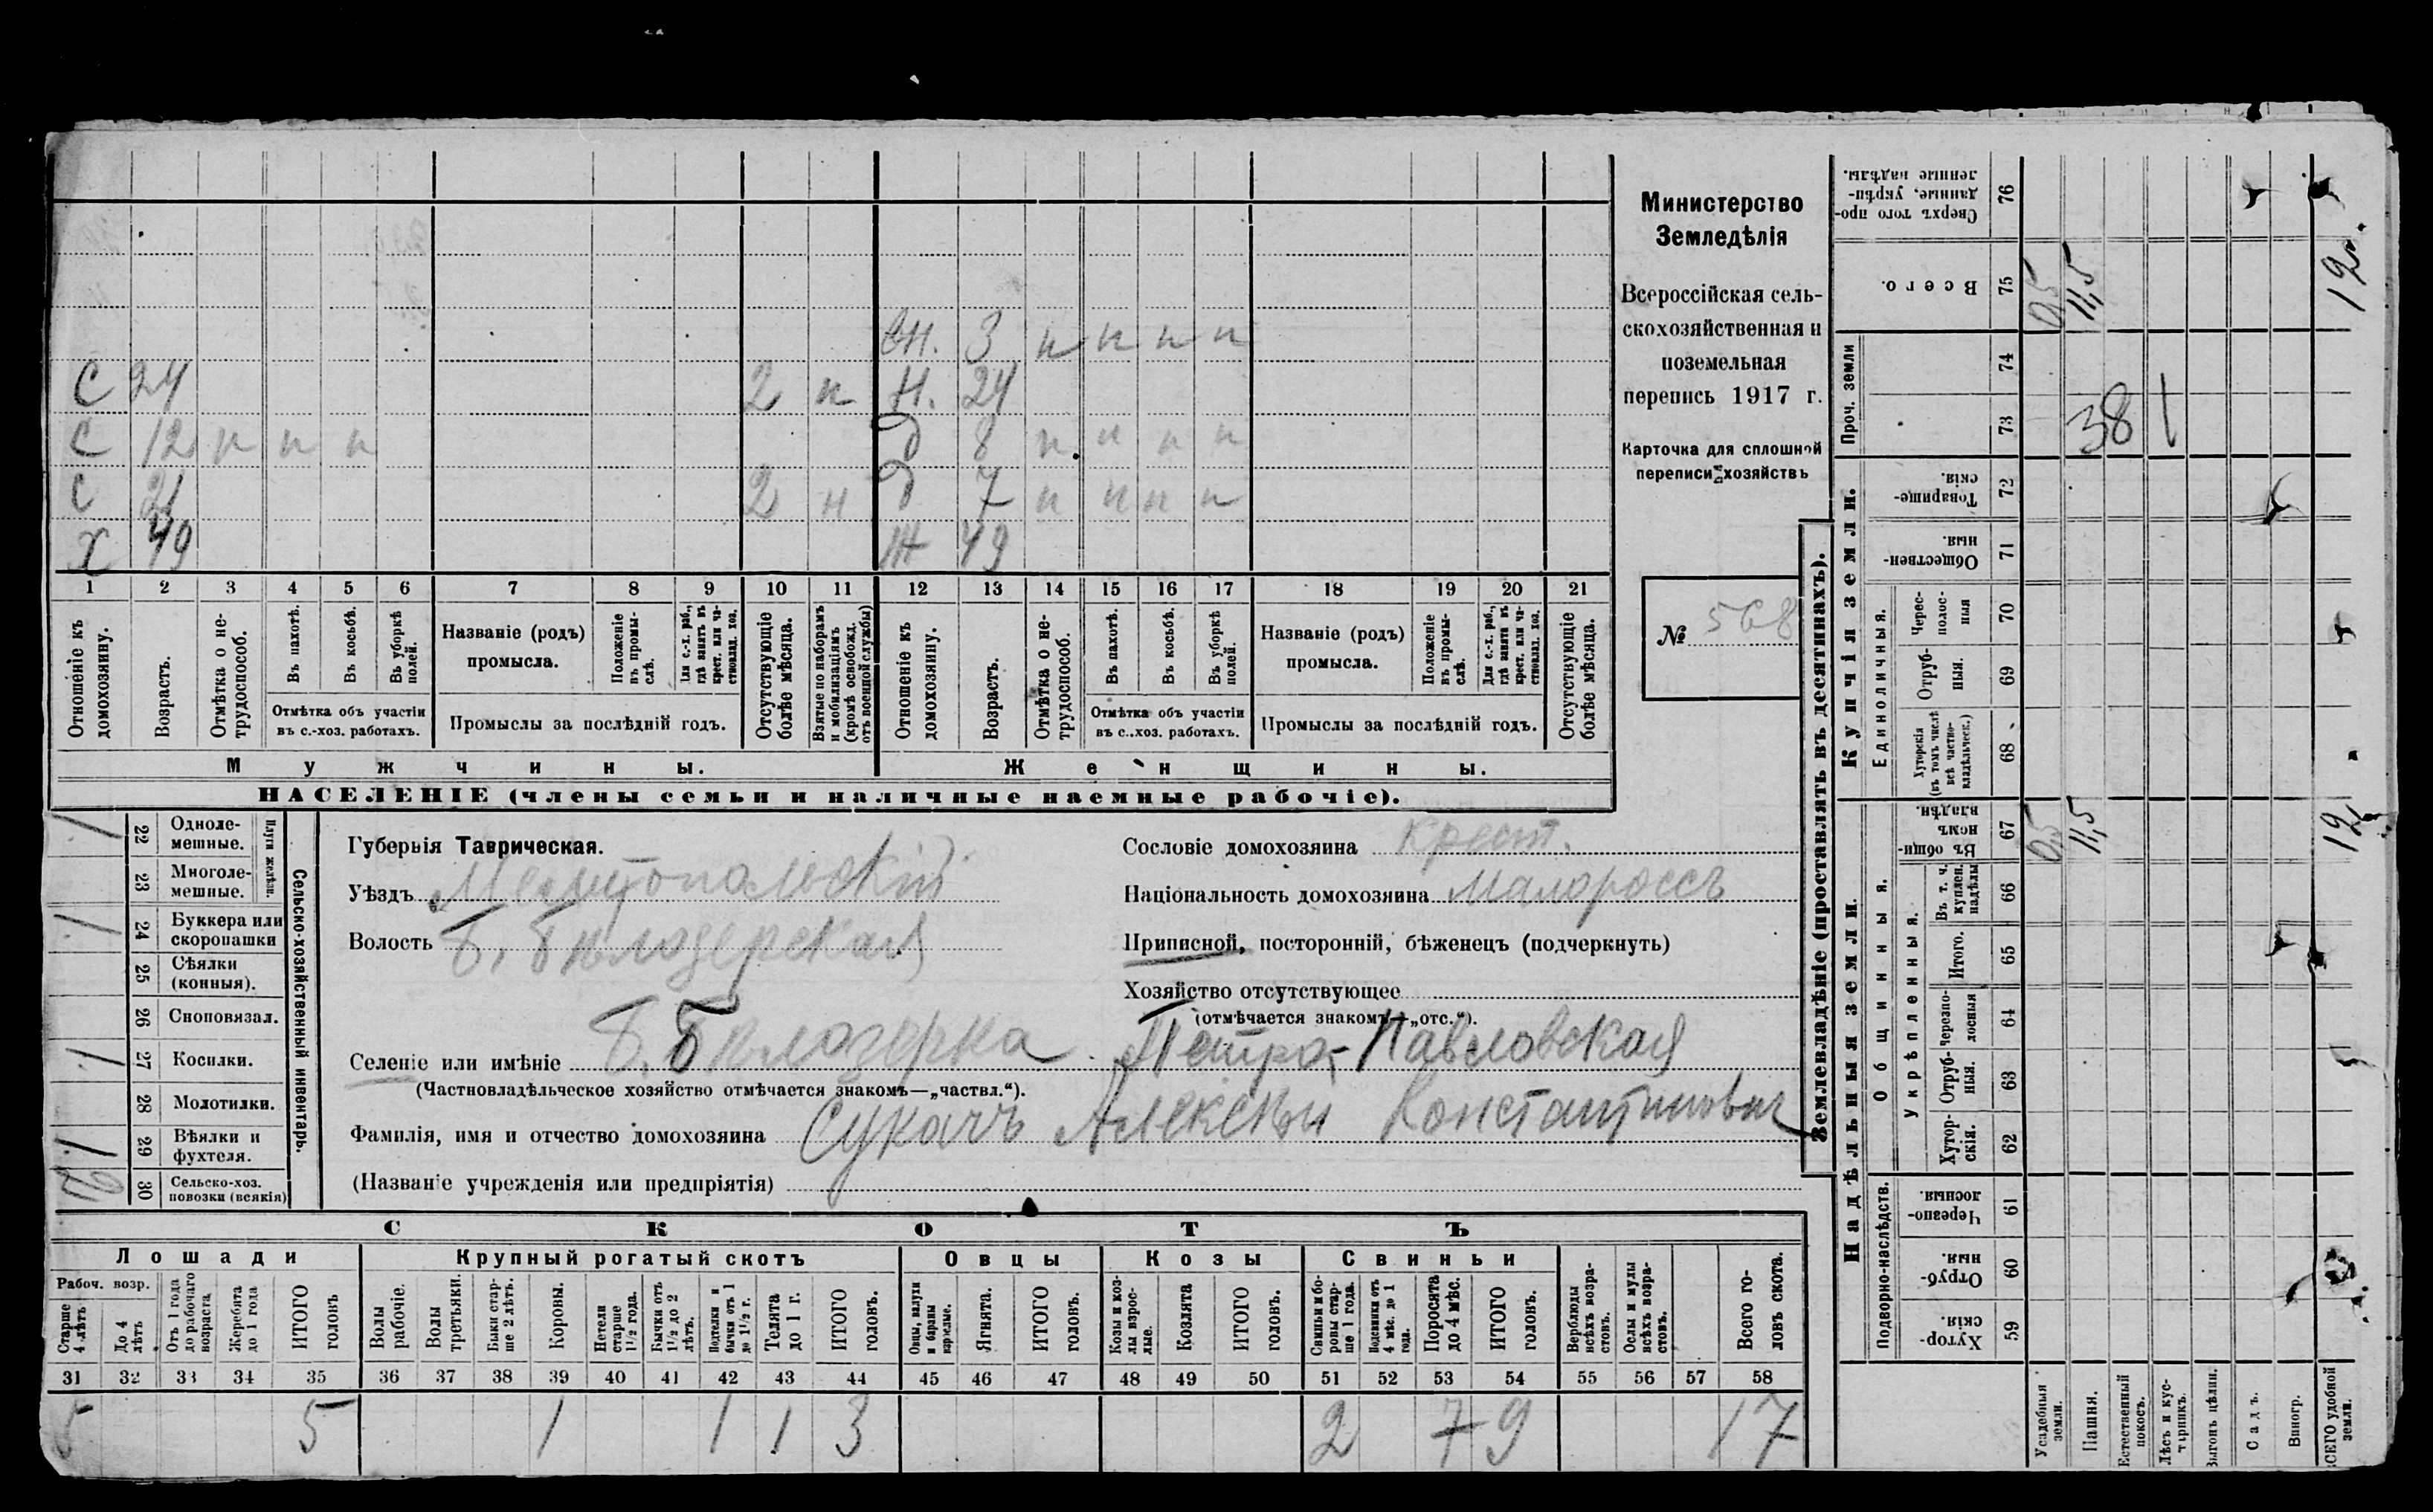 сн. 3 н н н н
С 24 2 н Н. 24
С 12 н н н д 8 н н н н
С 21 2 н д 7 н н н н
Х 49 Ж 49
1 2 3 4 5 6 7 8 9 10 11 12 13 14 15 16 17 18 19 20 21
Отношеніе къ домохозяину.
Возрастъ.
Отмѣтка о не-трудоспособ.
Въ пахотѣ.
Въ косьбѣ.
Въ уборкѣ полей.
Отмѣтка объ участіи въ с.-хоз. работахъ.
Названіе (родъ) промысла.
Положеніе въ промы-слѣ.
Для с.-х. раб., гдѣ занятъ въ крест. или ча-стновлад. хоз.
Промыслы за послѣдній годъ.
Отсутствующіе болѣе мѣсяца.
Взятые по наборамъ и мобилизаціямъ (кромѣ освобожд. отъ военной службы)
Отношеніе къ домохозяину.
Возрастъ.
Отмѣтка о не-трудоспособ.
Въ пахотѣ.
Въ косьбѣ.
Въ уборкѣ полей.
Отмѣтка объ участіи въ с..хоз. работахъ.
Названіе (родъ) промысла.
Положеніе въ промы-слѣ.
Для с.-х. раб., гдѣ занята въ крест. или ча-стновлад. хоз.
Промыслы за послѣдній годъ.
Отсутствующіе болѣе мѣсяца.
Мужчины.
Женщины.
НАСЕЛЕНІЕ (члены семьи и наличные наемные рабочіе).
Министерство
Земледѣлія
Всероссійская сель-
скохозяйственная и
поземельная
перепись 1917 г.
Карточка для сплошной
переписи хозяйствъ
№ 568
1 22 Одноле-мешные.
23 Многоле-мешные.
Плуги желѣзн.
1 24 Буккера или скоропашки
25 Сѣялки (конныя).
26 Сноповязал.
1 27 Косилки.
28 Молотилки.
1 29 Вѣялки и фухтеля.
30 Сельско-хоз. повозки (всякія)
Сельско-хозяйственный инвентарь.
Губернія Таврическая.
Уѣздъ Мелитопольскій
Волость Б. Бѣлозерская
Сословіе домохозяина крест.
Національность домохозяина малороссъ
Приписной, посторонній, бѣженецъ (подчеркнуть)
Хозяйство отсутствующее
(отмѣчается знакомъ—„отс.“).
Селеніе или имѣніе Б. Бѣлозерка Петро-Павловская
(Частновладѣльческое хозяйство отмѣчается знакомъ—„частвл.“).
Фамилія, имя и отчество домохозяина Сукачъ Алексѣй Константиновичъ
(Названіе учрежденія или предпріятія)
СКОТЪ
Лошади Крупный рогатый скотъ Овцы Козы Свиньи
Рабоч. возр.
Старше 4 лѣтъ
До 4 лѣтъ
Отъ 1 года до рабочаго возраста
Жеребята до 1 года
ИТОГО головъ
Волы рабочіе.
Волы третьяки.
Быки стар-ше 2 лѣтъ.
Коровы.
Нетели старше 1½ года.
Бычки отъ 1½ до 2 лѣтъ.
Подтелки и бычки отъ 1 до 1½ г.
Телята до 1 г.
ИТОГО головъ.
Овцы, валухи и бараны взрослые.
Ягнята.
ИТОГО головъ.
Козы и коз-лы взрос-лые.
Козлята
ИТОГО головъ.
Свиньи и бо-ровы стар-ше 1 года.
Подсвинки отъ 4 мѣс. до 1 года.
Поросята до 4 мѣс.
ИТОГО головъ.
Верблюды всѣхъ возра-стовъ.
Ослы и мулы всѣхъ возра-стовъ.
Всего го-ловъ скота.
31 32 33 34 35 36 37 38 39 40 41 42 43 44 45 46 47 48 49 50 51 52 53 54 55 56 57 58
5 5 1 1 1 3 2 7 9 17
Землевладѣніе (проставлять въ десятинахъ).
Надѣльныя земли.
Купчія земли.
Проч. земли
Сверхъ того про-данные, укрѣп-ленные надѣлы. 76
Всего. 75
74
73
Товарище-скія. 72
Обществен-ныя. 71
Единоличныя.
Черес-полос-ныя 70
Отруб-ныя. 69
Хуторскія (въ томъ числѣ всѣ частно-владѣльческ.) 68
Общинныя.
Въ общи-номъ владѣн. 67
Укрѣпленныя.
Въ т. ч. куплен. надѣлы 66
Итого. 65
Черезпо-лосныя 64
Отруб-ныя. 63
Хутор-скія. 62
Подворно-наслѣдств.
Черезпо-лосныя. 61
Отруб-ныя. 60
Хутор-скія. 59
Усадебныя земли.
Пашня.
Естественный покосъ.
Лѣсъ и кус-тарникъ.
Выгонъ цѣлин.
Садъ.
Виногр.
ВСЕГО удобной земли.
0,5 11,5 12.
381
0,5 11,5 12